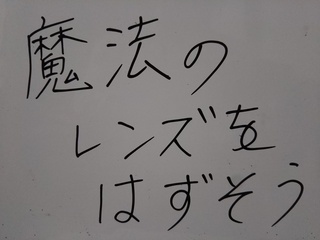 魔法の
レンズを
はずそう